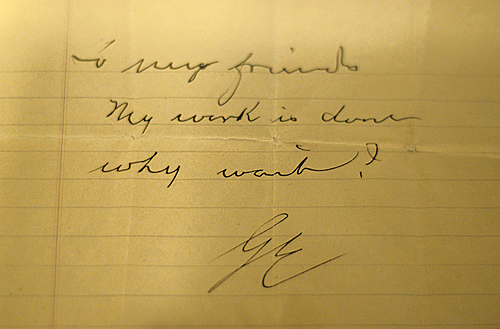 to my friends
My work is done
why wait?
GE